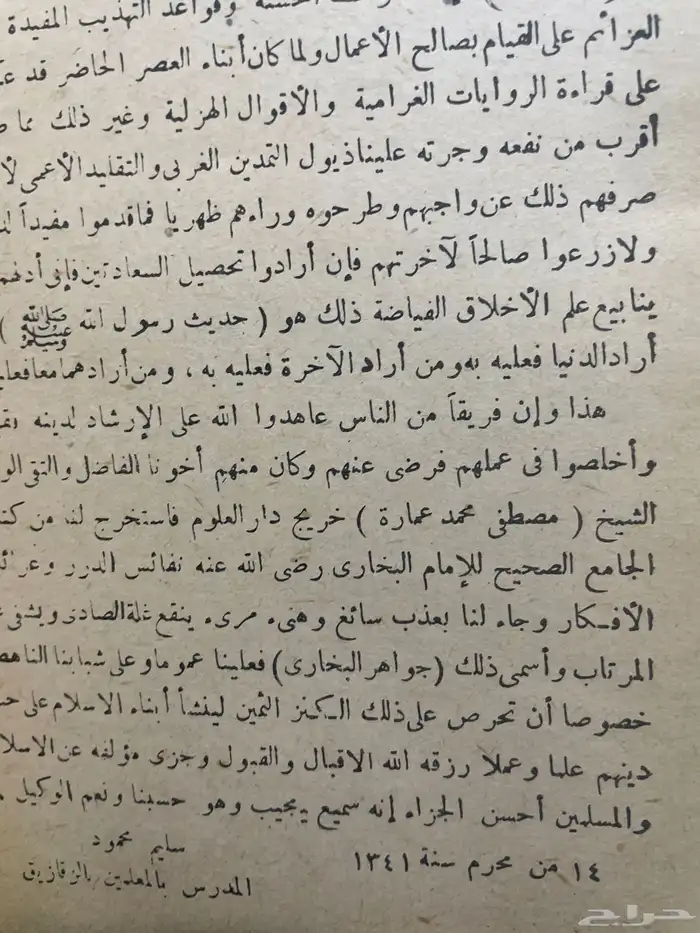 وقواعد التهذيب المفيدة
العزائم على القيام بصالح الأعمال ولما كان أبناء العصر الحاضر قد
على قراءة الروايات الغرامية والأقوال الهزلية وغير ذلك مما
أقرب من نفعه وجرته علينا ذيول التمدين الغربى والتقليد الأعمى
صرفهم ذلك عن واجبهم وطرحوه وراءهم ظهريا فما قدموا مفيداً
ولا زرعوا صالحاً لآخرتهم فإن أرادوا تحصيل السعادتين فإنى أدلهم
ينابيع علم الأخلاق الفياضة ذلك هو ( حديث رسول الله ﷺ )
أراد الدنيا فعليه به ومن أراد الآخرة فعليه به ، ومن أرادهما معا
هذا وإن فريقاً من الناس عاهدوا الله على الإرشاد لدينه
وأخلصوا فى عملهم فرضى عنهم وكان منهم أخونا الفاضل والتقى
الشيخ ( مصطفى محمد عمارة ) خريج دار العلوم فاستخرج لنا من
الجامع الصحيح للإمام البخارى رضى الله عنه نفائس الدرر
الأفكار وجاء لنا بعذب سائغ وهنىء مرىء ينقع غلة الصادى ويشفى
المرتاب وأسمى ذلك (جواهر البخارى) فعلينا عموما وعلى شبابنا
خصوصا أن تحرص على ذلك الكنز الثمين لينشأ أبناء الاسلام على
دينهم علما وعملا رزقه الله الاقبال والقبول وجزى مؤلفه عن الاسلام
والمسلمين أحسن الجزاء إنه سميع مجيب وهو حسبنا ونعم الوكيل
١٤ من محرم سنة ١٣٤١
سليم محمود
المدرس بالمعلمين بالزقازيق
حراج